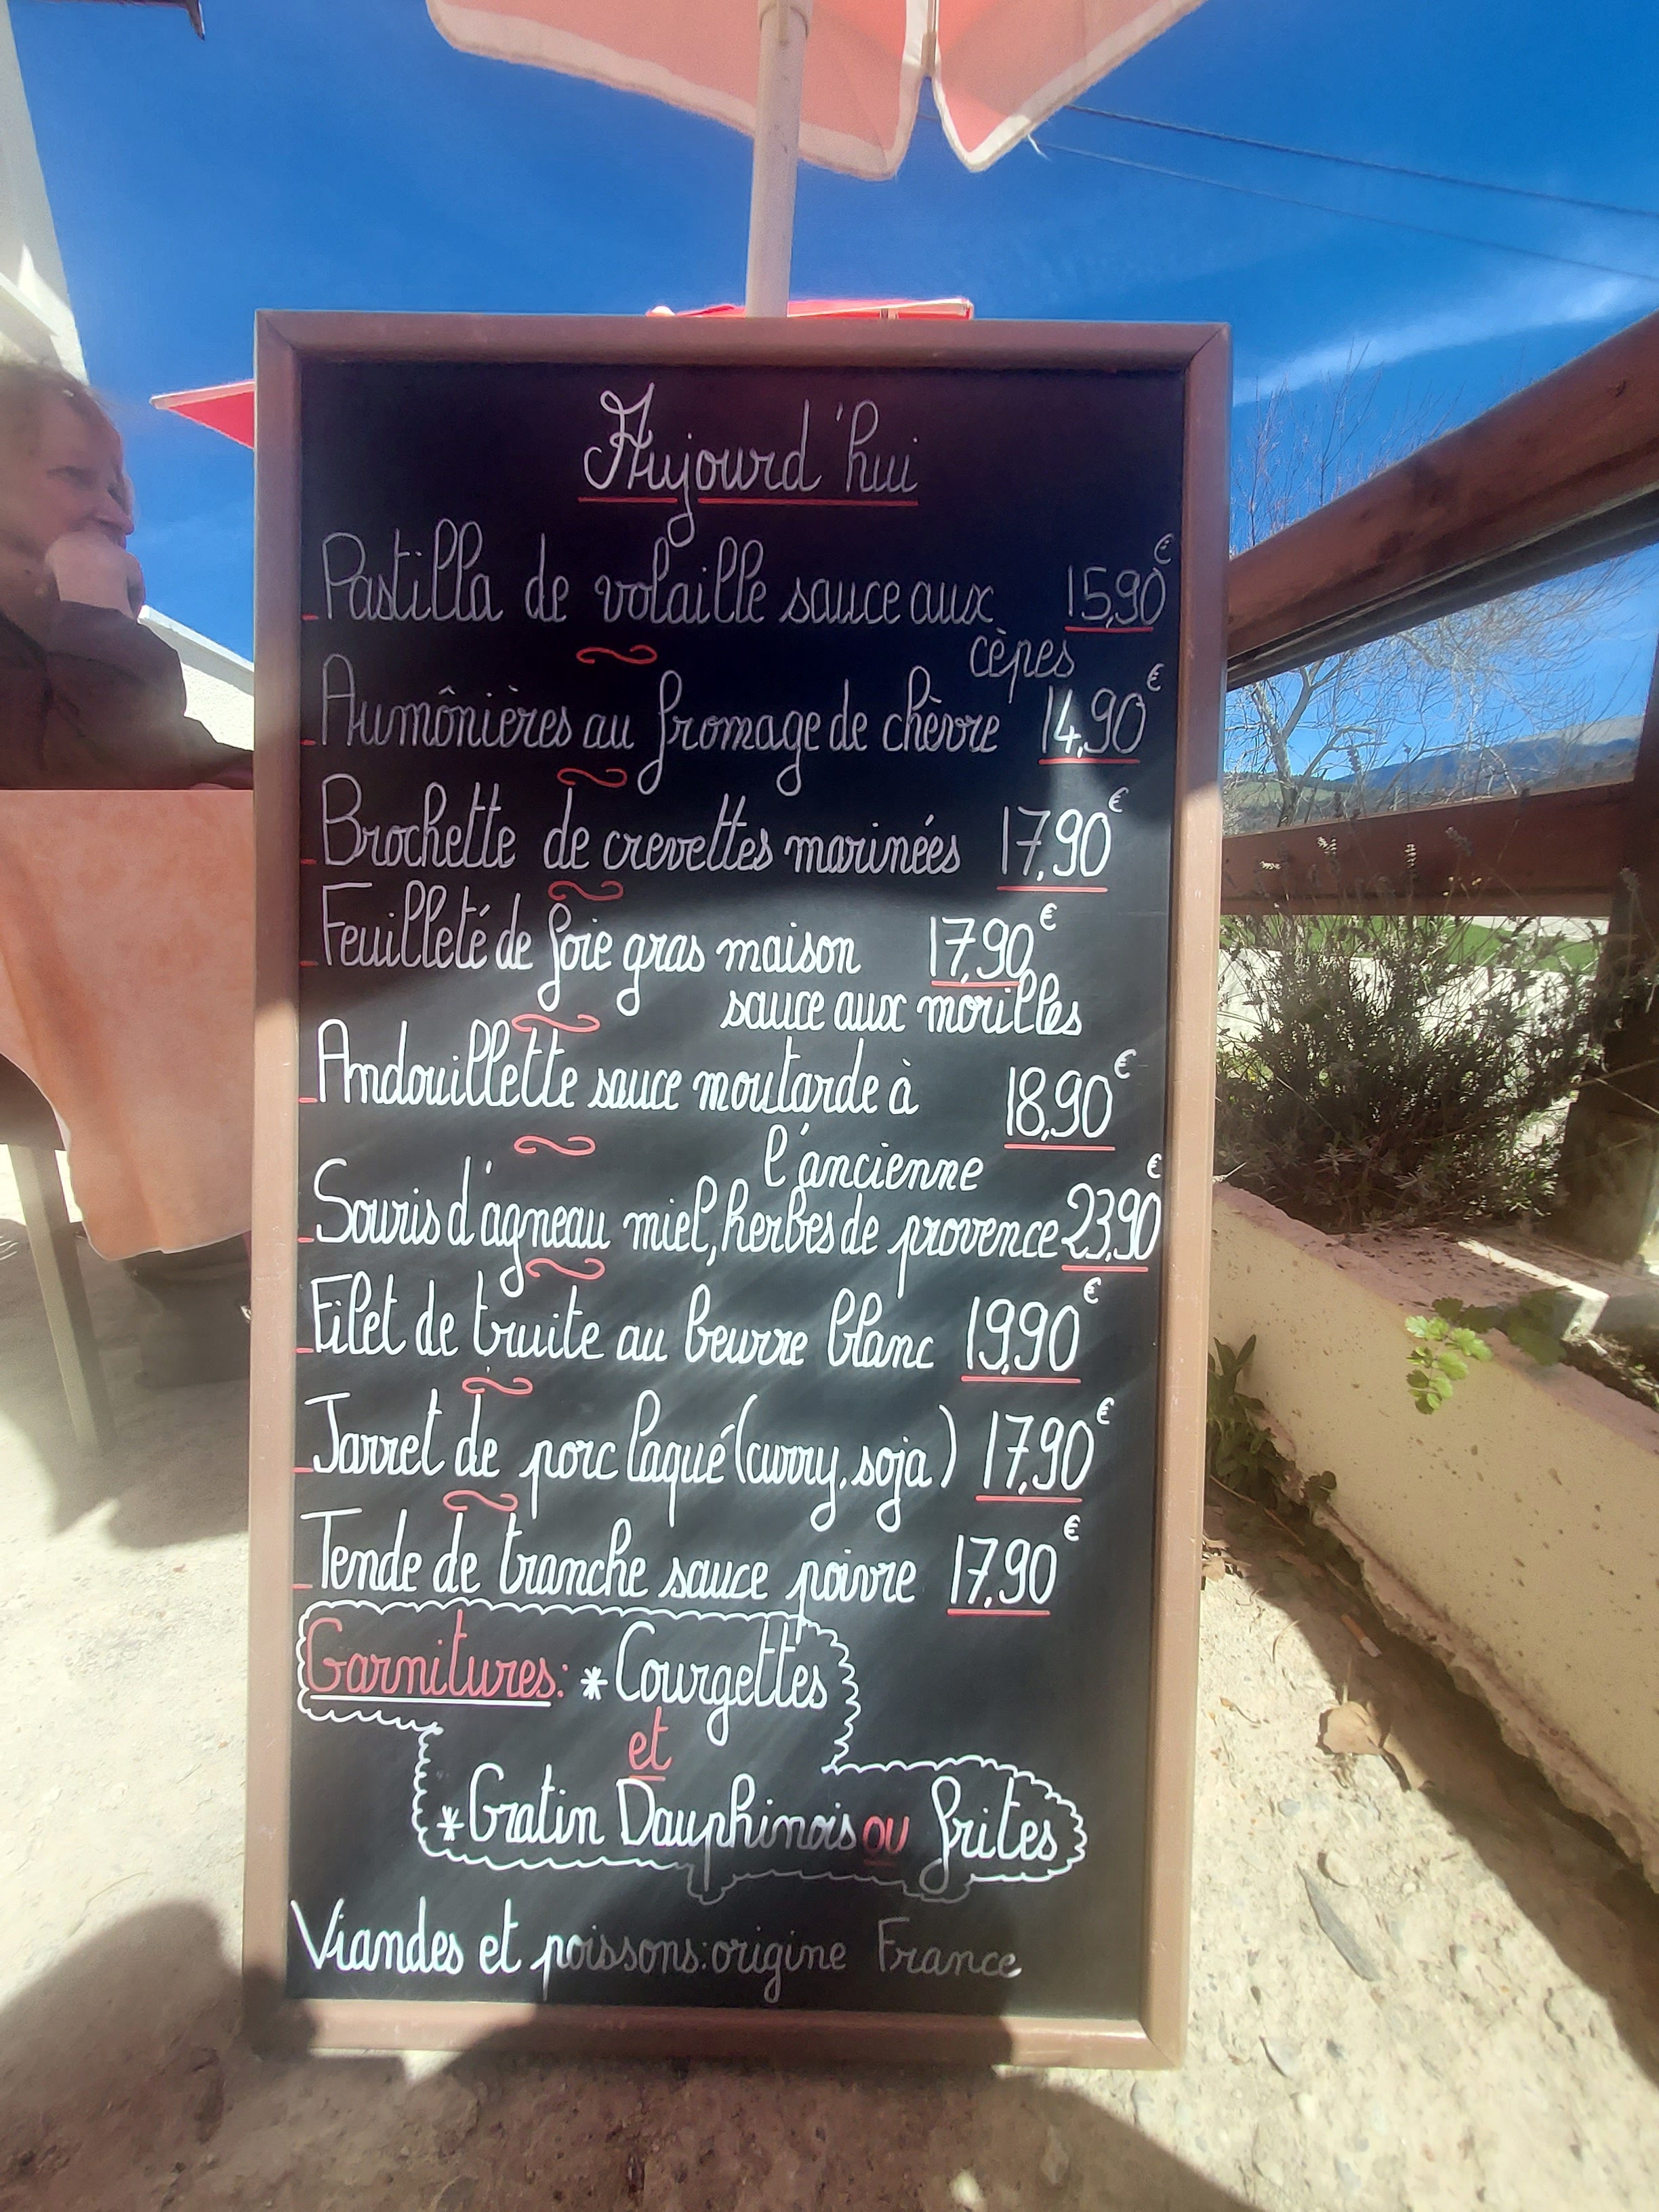 Aujourd'hui
- Pastilla de volaille sauce aux 15,90€
cèpes
- Aumônières au fromage de chèvre 14,90€
- Brochette de crevettes marinées 17,90€
- Feuilleté de foie gras maison 17,90€
sauce aux morilles
- Andouillette sauce moutarde à 18,90€
l'ancienne
- Souris d'agneau miel, herbes de provence 23,90€
- Filet de truite au beurre blanc 19,90€
- Jarret de porc laqué (curry, soja) 17,90€
- Tende de tranche sauce poivre 17,90€
Garnitures: * Courgettes
et
* Gratin Dauphinois ou frites
Viandes et poissons: origine France